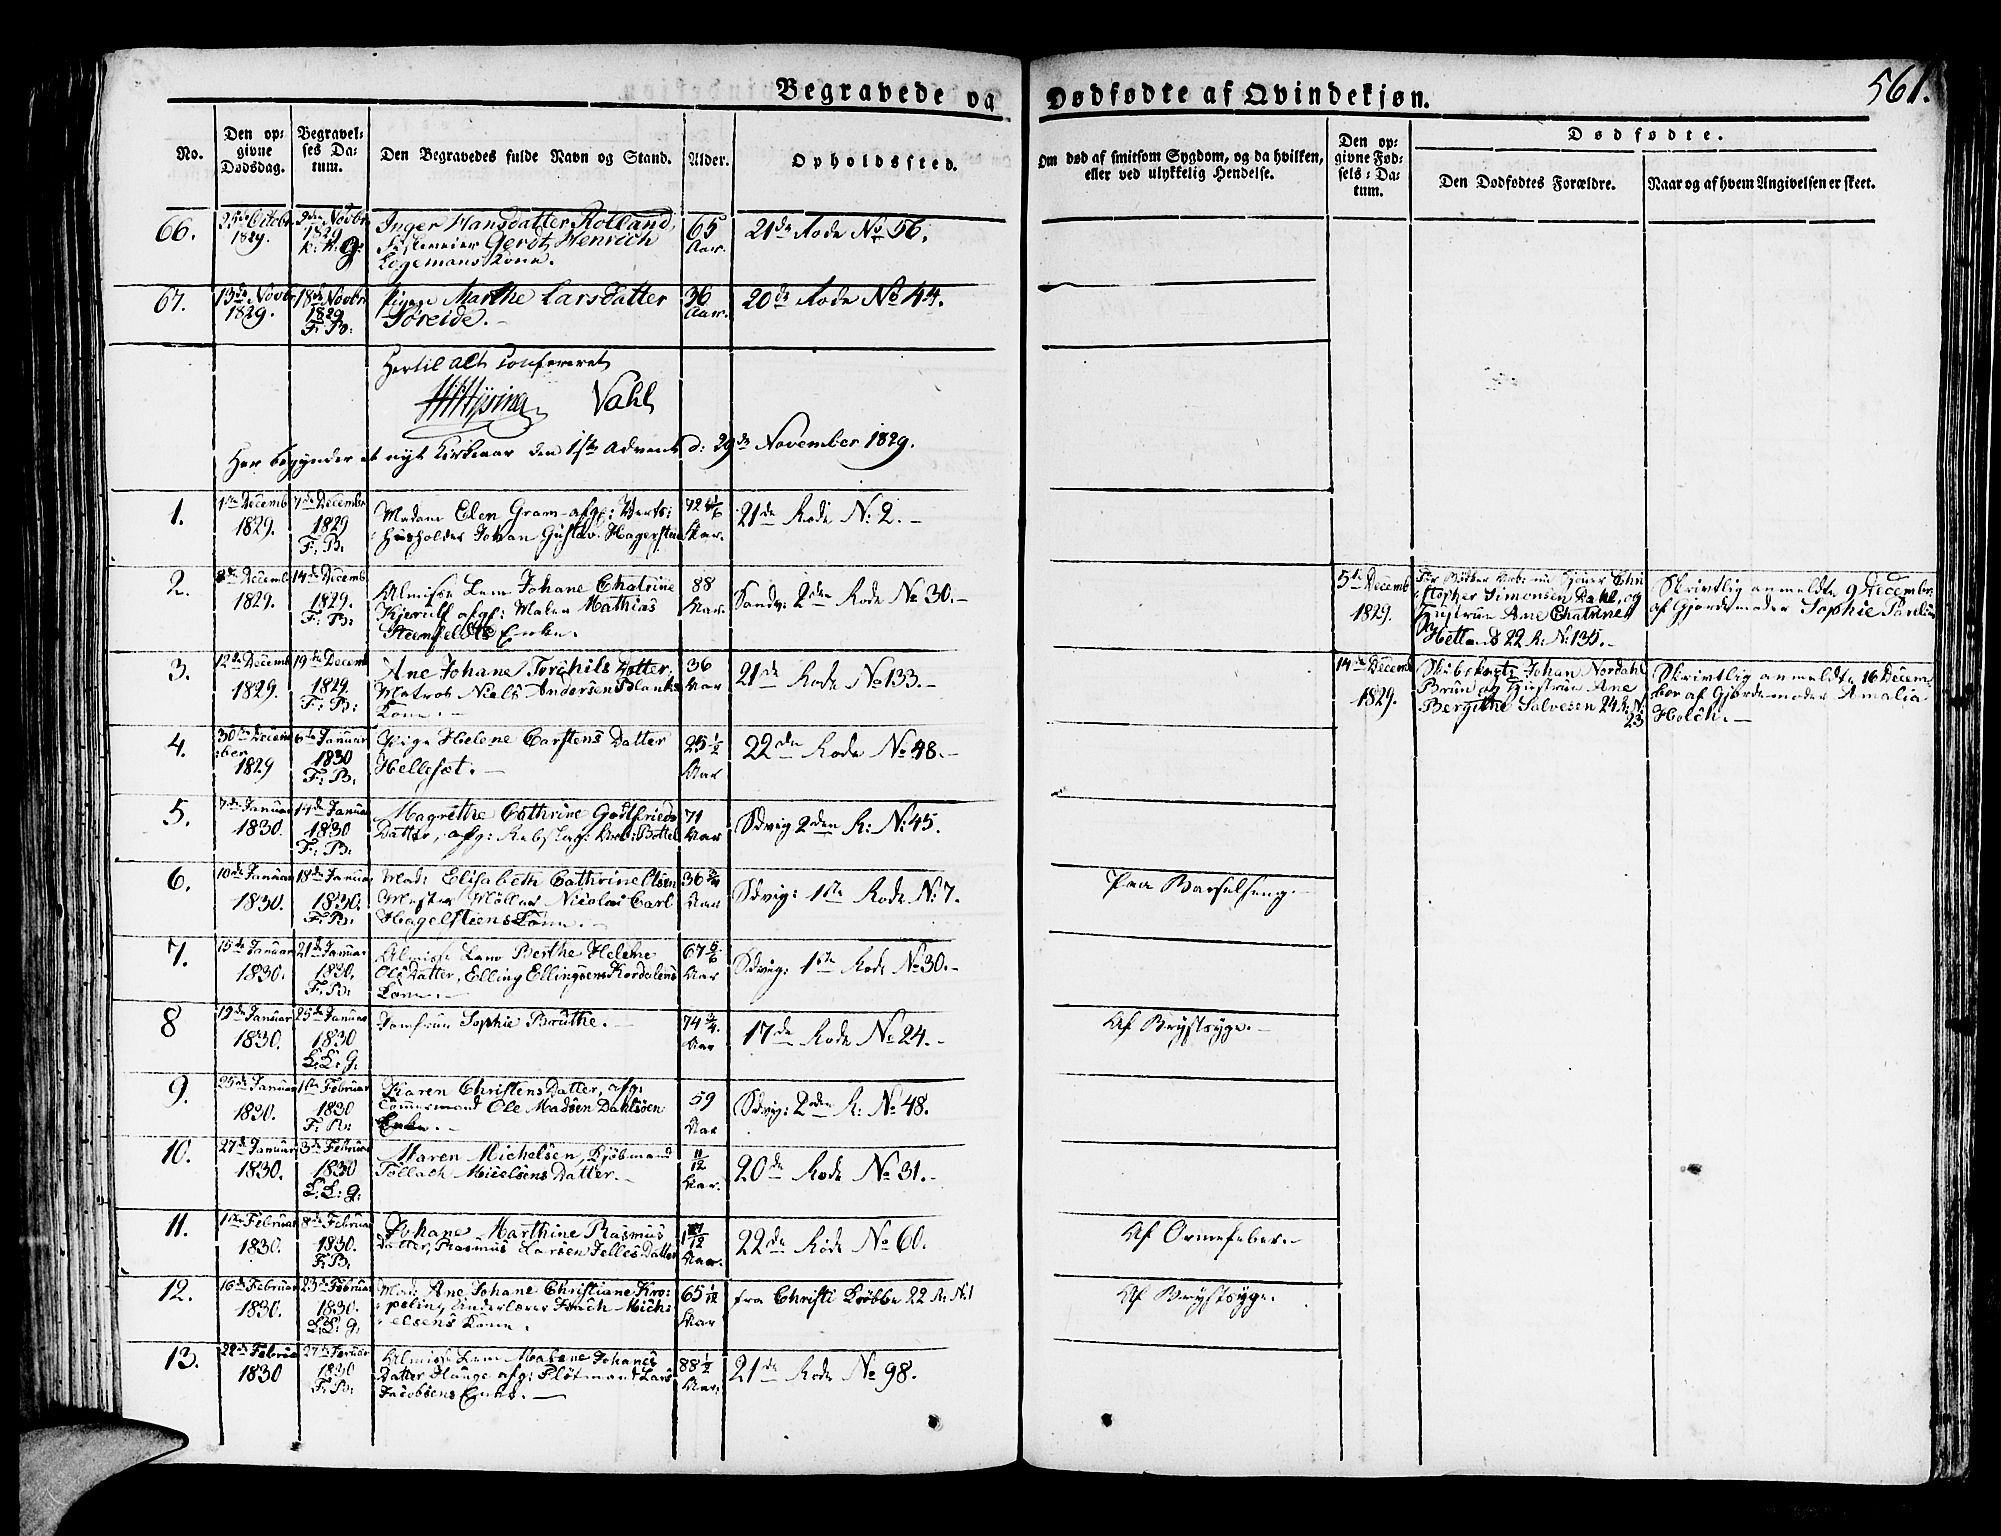 561.
Begravede og Dødfødte af Qvindekjøn.
No.
Den op-
givne
Dødsdag.
Begravel-
ses Da-
tum.
Den Begravedes fulde Navn og Stand.
Alder.
Opholdssted.
Om død af smitsom Sygdom, og da hvilken,
eller ved ulykkelig Hendelse.
Den op-
givne Fød-
sels-Da-
tum.
Dødfødte.
Den Dødfødtes Forældre.
Naar og af hvem Angivelsen er skeet.
66.
25de Octobr
1829.
9den Novbr
1829
K: K: G:
Inger Hansdatter Rolland,
Gerdt Henrich
Legemans Kone.
65
Aar.
21de Rode No 56.
67.
13de Novbr
1829.
18de Novbr
1829
F: B:
Pigen Marthe Larsdatter
Søreide.-
36
Aar.
20de Rode No 44.
Hertil alt confereret
Vahl
Her begynder et nyt Kirkeaar den 1ste Advent d: 29de November 1829.
1.
1ste Decembr
1829.
7de Decembr
1829
F: B:
Madam Elen Gram afg: Verts-
husholder Johan Gustav Hagerstien
72 1/6
Aar.
21de Rode N: 2.-
2.
8de Decemb
1829.
14de Decemb
1829.
F: B:
Almisse Lem Johane Chatrine
Kjerulf afg: Maler Mathias
Steenfeldts Enke.
88
Aar.
Sandv: 2den Rode No 30.-
5te Decemb
1829.
Simonsen Dahl, og
Hustrue Ane Chatrine
Hetland 22 R: N: 135.
Skrivtlig anmeldt 9 Decembr
af Gjordemoder Sophie
3.
12de Decemb
1829.
19de Decemb
1829.
F: B:
Ane Johane Torchils Datter,
Matros Niels Andersen Blanks
Kone.-
36
Aar
21de Rode No 133.-
14de Decemb
1829.
Johan Nordahl
Brun og Hustrue Ane
Bergithe Salvesen 24 R: N:
23
Skrivtlig anmeldt 16 Decem-
ber af Gjordemoder Amalia
Holch.-
4.
30te Decem-
ber
1829
6te Januar
1830
F: B:
Pige Helene Carstens Datter
Hellesæt.-
25 1/2
Aar
22de Rode No 48.-
5.
7de Januar
1830.
14de Januar
1830
F: B:
Magrethe Cathrine Godtfrieds
Datter, afg:
71
Aar
Sdvig 2den R: N: 45.
6.
10de Januar
1830.
18de Januar
1830.
F: B:
Mad: Elisabeth Cathrine Olsen
Mester Møller Nicolai Carl
Hagelstiens Kone.-
36 3/4
Aar
Sdvig: 1ste Rode N: 7.
Paa Barselseng.-
7.
15de Januar
1830.
21de Januar
1830.
F: B:
Almisse Lem Berthe Helene
Ols Datter, Elling Ellingsens Kordalens
Kone.-
67 5/6
Aar
Sdvig: 1ste Rode No 30.-
8
19de Januar
1830.
25de Januar
1830
L: L: G.
Jomfrue Sophie Bruthe.-
74 3/4.
Aar
17de Rode No 24.-
Af Brystsyge.-
9.
25de Januar
1830.
1ste Februar
1830
F: B:
Karen Christens Datter, afg:
Tømmermand Ole Madsen Dahlsøen
Enke.-
59
Aar
Sdvig: 2den R: No 48.
10.
27de Januar
1830.
3de Februar
1830
L: L: G:
Maren Michelsen, Kjøbmand
Tollach Micelsens Datter.-
11/12
Aar.
20de Rode No 31.-
11.
1ste Februar
1830.
8de Februar
1830.
F: B:
Johane Marthine Rasmus
Datter, Rasmus Larsen Jelles Datter
1 11/12
Aar.
22de Rode No 60.
Af Ormefeber.-
12.
16de Februar
1830.
23de Februar
1830.
L: L: G.
Mad: Ane Johane Christiane Kro-
peling Mich-
elsens Kone.
65 1/12
Aar
fra Christi Krybbe 22 R: N: 1
Af Brystsyge.
13.
22de Februar
1830
27de Februar
1830
F: B:
Almisse Lem Malene Johanes
Datter Hauge afg: Lars
Jacobsens Enke.-
88 1/2
Aar.
21de Rode No 98.